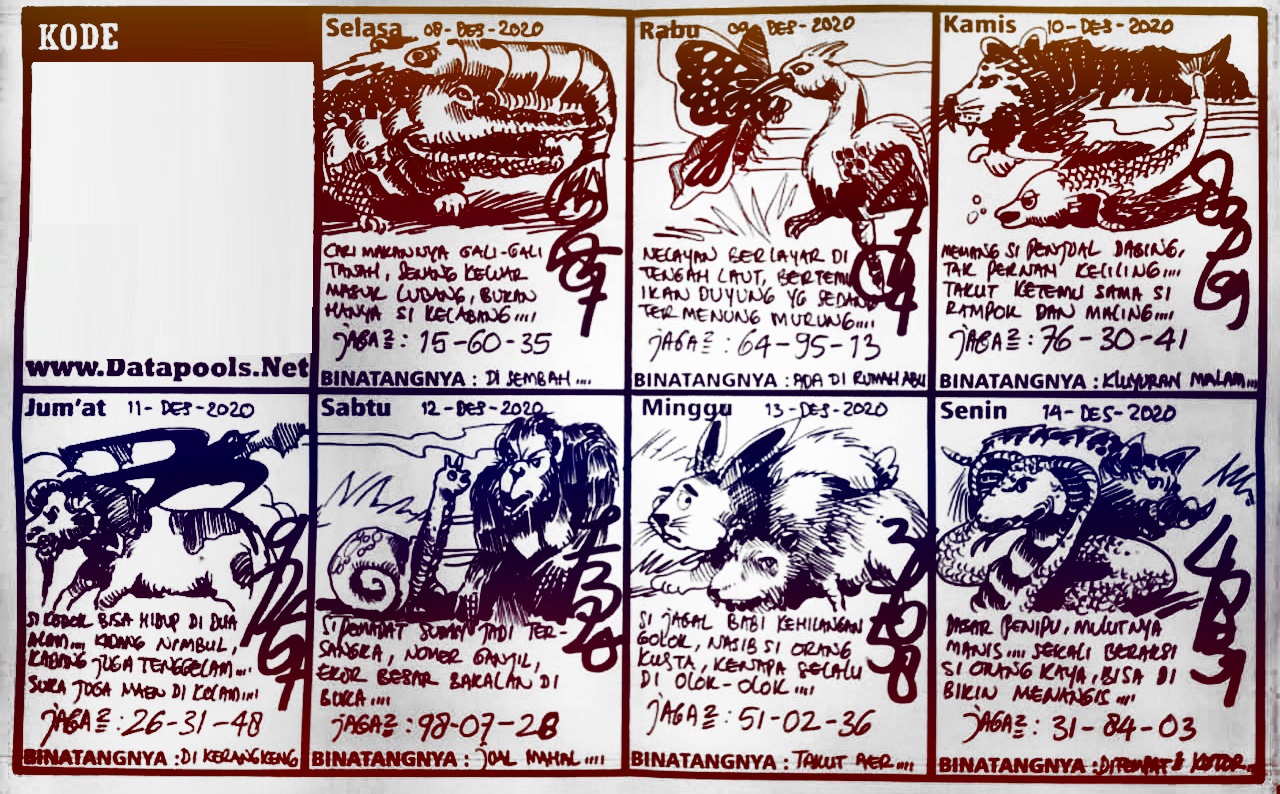 KODE
www.Datapools.Net
Selasa 08-DES-2020
CARI MAKANNYA GALI-GALI
TANAH, SENANG KELUAR
MASUK LUBANG, BUKAN
HANYA SI KELABANG....
JAGA2 : 15-60-35
BINATANGNYA : DI SEMBAH ....
Rabu 09-DES-2020
NELAYAN BERLAYAR DI
TENGAH LAUT, BERTEMU
IKAN DUYUNG YG SEDANG
TERMENUNG MURUNG....
JAGA2 : 64-95-13
BINATANGNYA : ADA DI RUMAH ABU
Kamis 10-DES-2020
MEMANG SI PENJUAL DAGING,
TAK PERNAH KELILING....
TAKUT KETEMU SAMA SI
RAMPOK DAN MALING....
JAGA2 : 76-30-41
BINATANGNYA : KLUYURAN MALAM....
Jum'at 11-DES-2020
SI KODOK BISA HIDUP DI DUA
ALAM.... KADANG NIMBUL,
KADANG JUGA TENGGELAM....
SUKA JUGA MAEN DI KOLAM....
JAGA2 : 26-31-48
BINATANGNYA : DI KERANGKENG
Sabtu 12-DES-2020
SI PEMADAT SUDAH JADI TER-
SANGKA, NOMER GANJIL,
EKOR BESAR BAKALAN DI
BUKA....
JAGA2 : 98-07-28
BINATANGNYA : JUAL MAHAL ....
Minggu 13-DES-2020
SI JAGAL BABI KEHILANGAN
GOLOK, NASIB SI ORANG
KUSTA, KENAPA SELALU
DI OLOK-OLOK ....
JAGA2 : 51-02-36
BINATANGNYA : TAKUT AER....
Senin 14-DES-2020
DASAR PENIPU, MULUTNYA
MANIS.... SEKALI BERAKSI
SI ORANG KAYA, BISA DI
BIKIN MENANGIS ....
JAGA2 : 31-84-03
BINATANGNYA : DITEMPAT2 KOTOR..